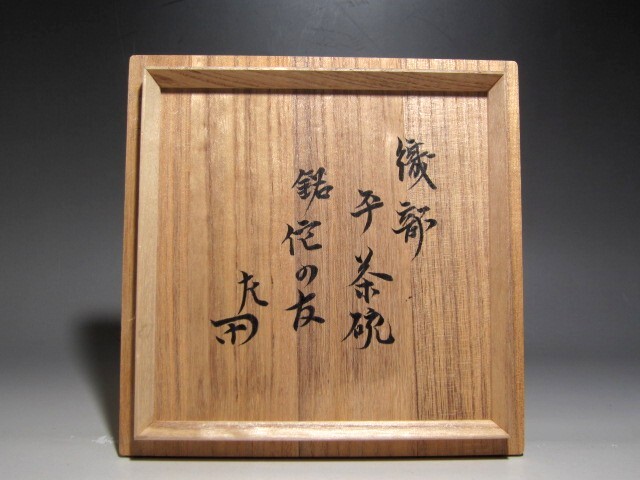 織部
平茶碗
銘侘の友